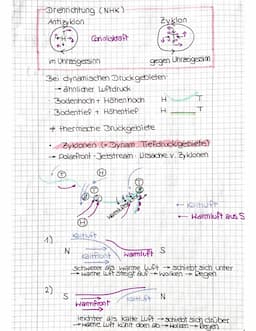 Drehrichtung (NHK)
Antizyklon Zyklon
H Corioliskraft T
im Uhrzeigersinn gegen Uhrzeigersinn
Bei dynamischen Druckgebieten:
→ ähnlicher Luftdruck
Bodenhoch + Höhenhoch H T
Bodentief + Höhentief H T
≠ thermische Druckgebiete
• Zyklonen (= Dynam. Tiefdruckgebiete)
→ Polarfront-Jetstream: Ursache v. Zyklonen
T
T
T
H
H
Warmluft
← Kaltluft
← Warmluft aus S
1) Kaltluft
N Kaltfront Warmluft S
schwerer als warme Luft → schiebt sich unter
→ warme Luft steigt auf → Wolken → Regen
2)
S Warmfront Kaltluft N
leichter als kalte Luft → schiebt sich drüber
→ warme Luft kühlt oben ab → Wolken → Regen